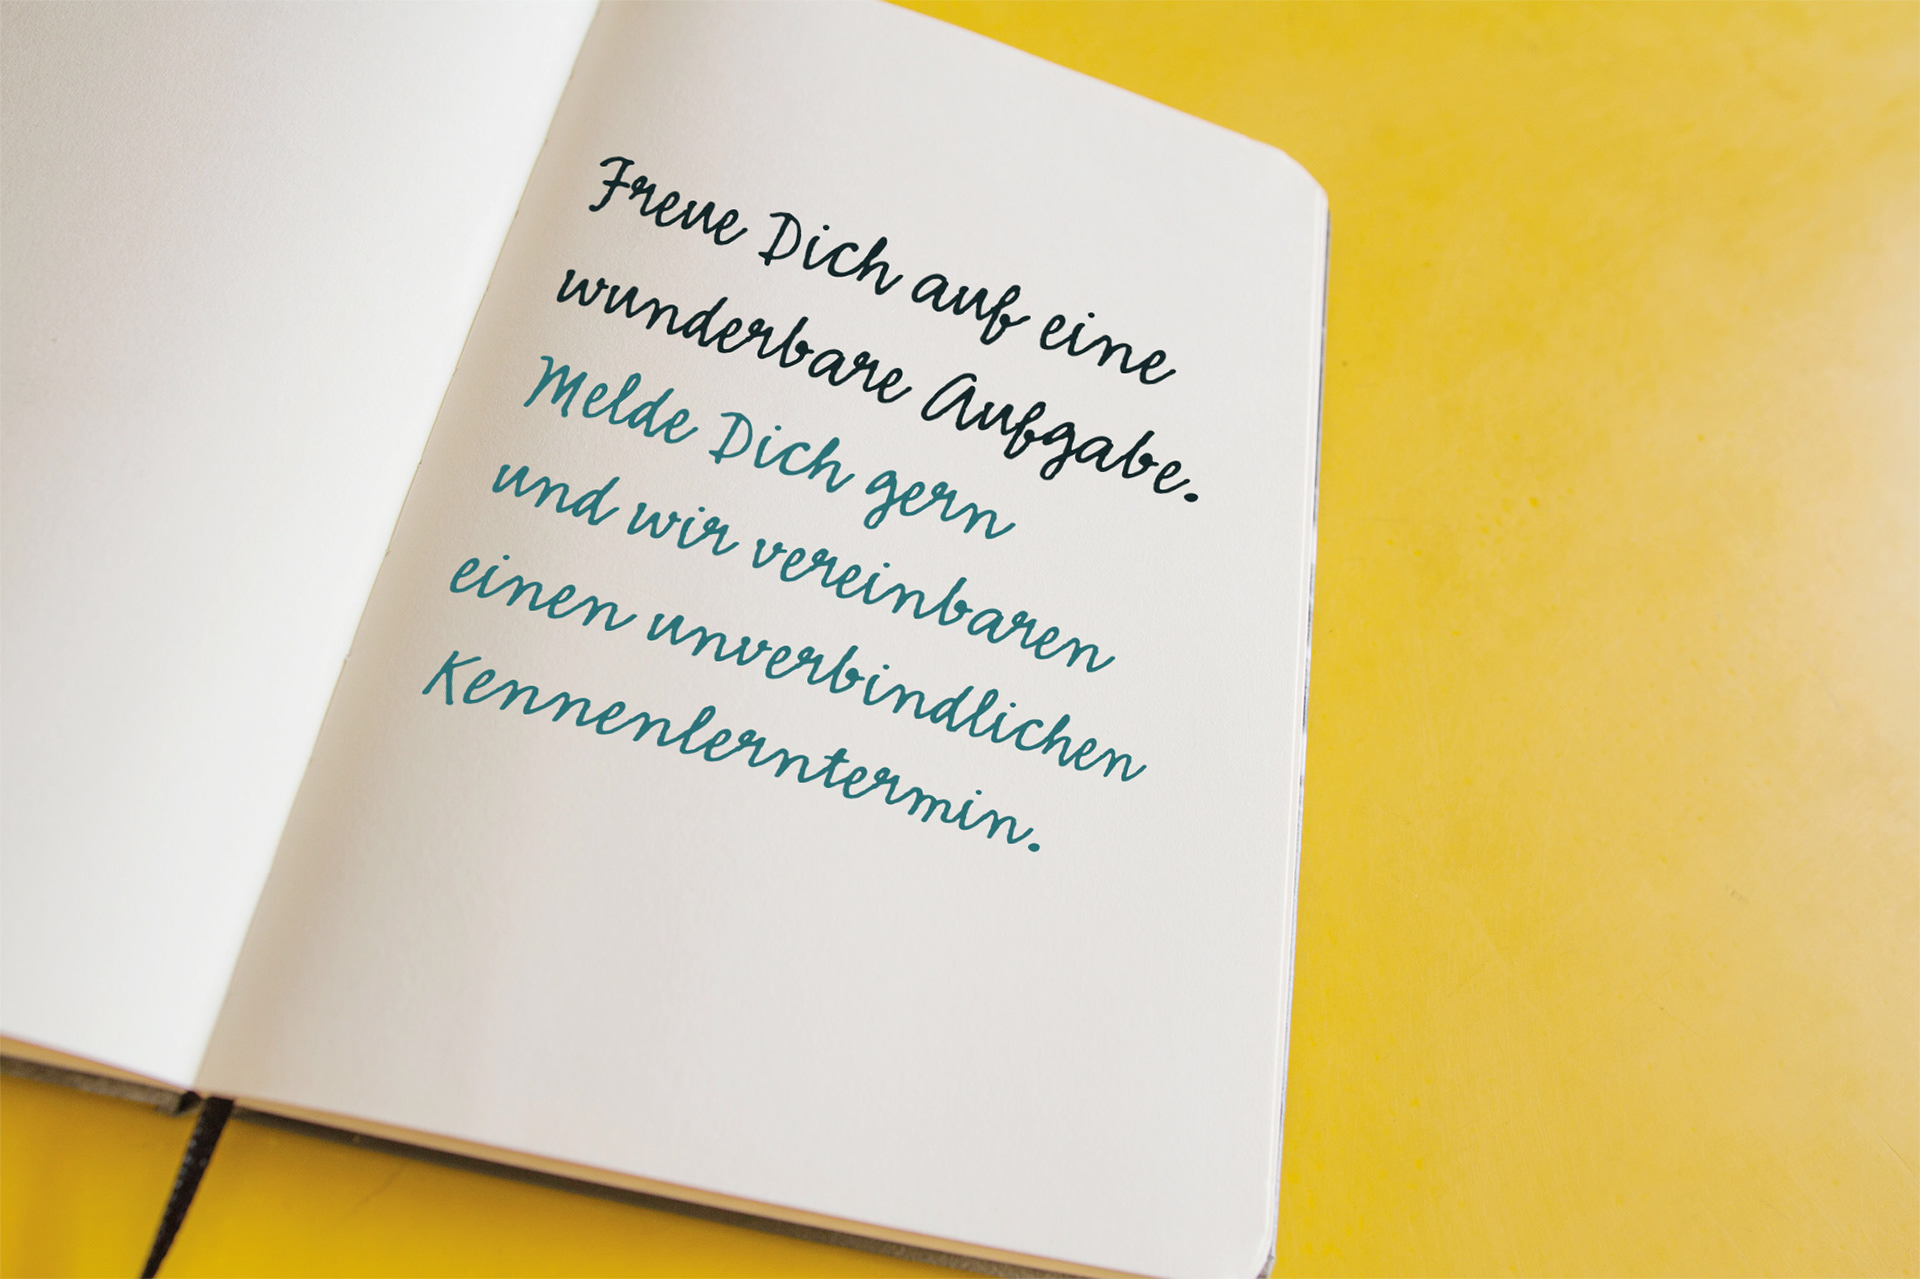 Freue Dich auf eine
wunderbare Aufgabe.
Melde Dich gern
und wir vereinbaren
einen unverbindlichen
Kennenlerntermin.